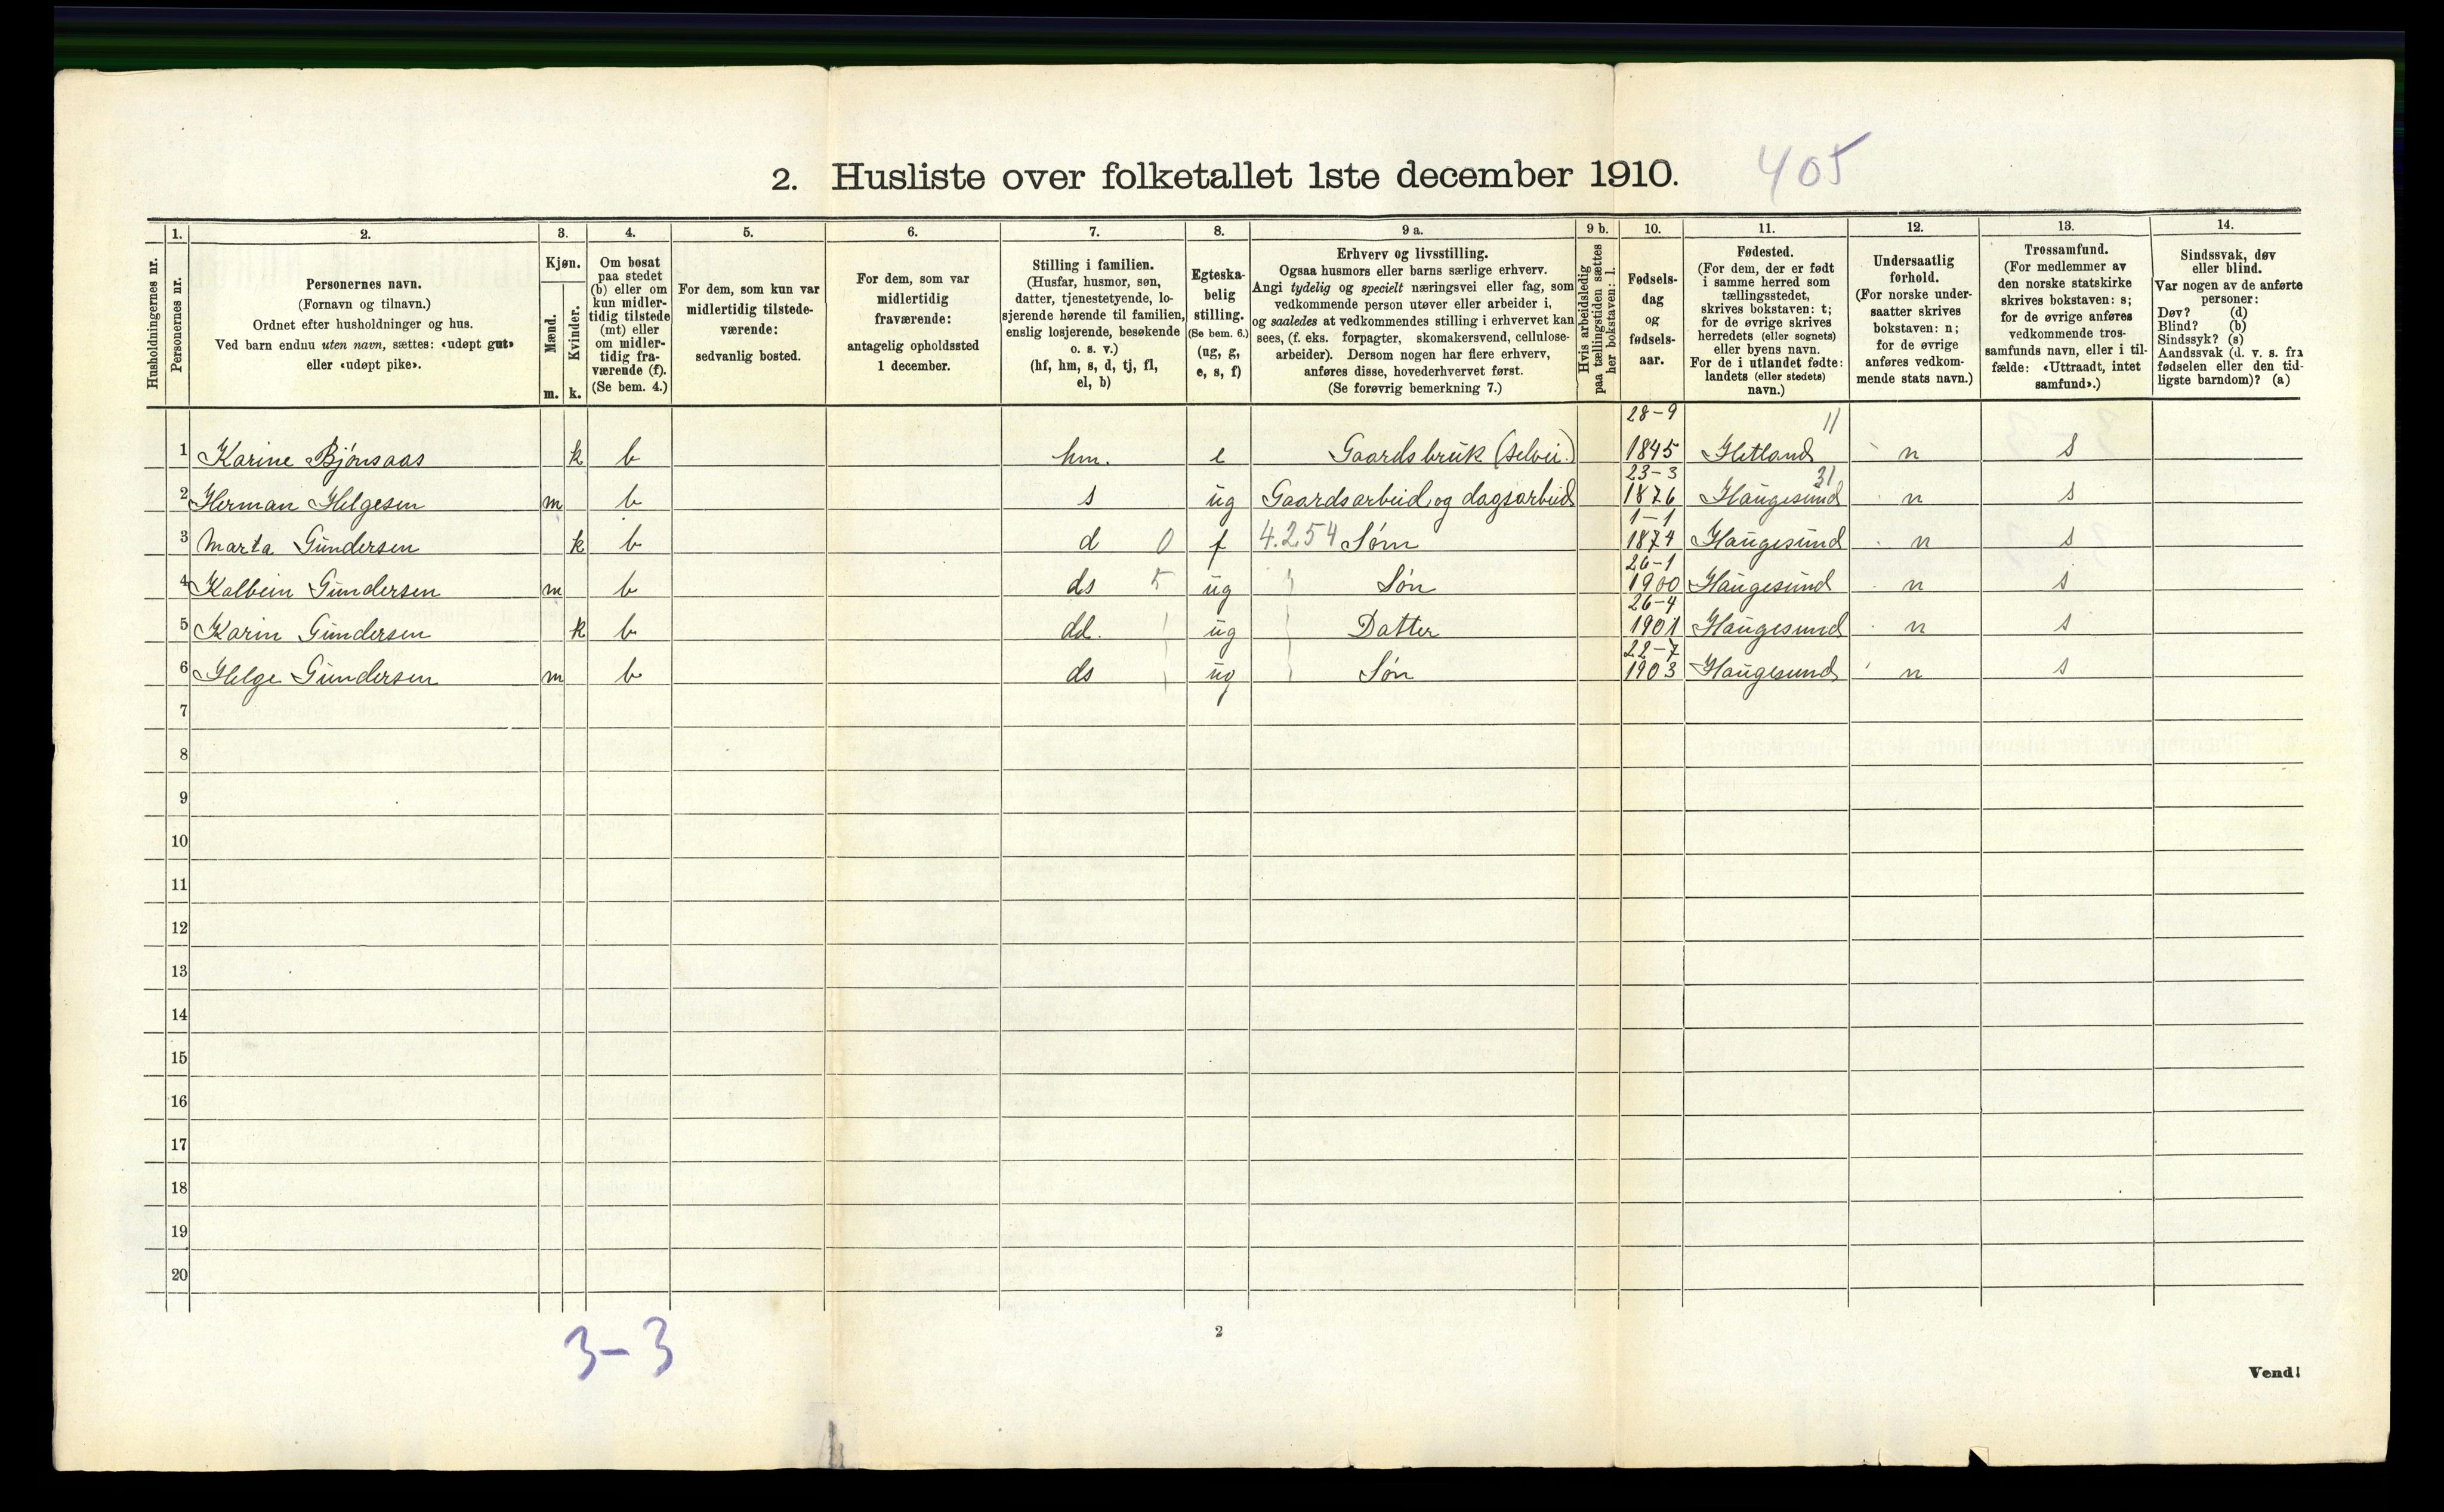 2. Husliste over folketallet 1ste december 1910. 405
1. 2. 3. 4. 5. 6. 7. 8. 9 a. 9 b. 10. 11. 12. 13. 14.
Husholdningernes nr.
Personernes nr.
Personernes navn.
(Fornavn og tilnavn.)
Ordnet efter husholdninger og hus.
Ved barn endnu uten navn, sættes: «udøpt gut»
eller «udøpt pike».
Kjøn.
Mænd.
Kvinder.
m. k.
Om bosat
paa stedet
(b) eller om
kun midler-
tidig tilstede
(mt) eller
om midler-
tidig fra-
værende (f).
(Se bem. 4.)
For dem, som kun var
midlertidig tilstede-
værende:
sedvanlig bosted.
For dem, som var
midlertidig
fraværende:
antagelig opholdssted
1 december.
Stilling i familien.
(Husfar, husmor, søn,
datter, tjenestetyende, lo-
sjerende hørende til familien,
enslig losjerende, besøkende
o. s. v.)
(hf, hm, s, d, tj, fl,
el, b)
Egteska-
belig
stilling.
(Se bem. 6.)
(ug, g,
e, s, f)
Erhverv og livsstilling.
Ogsaa husmors eller barns særlige erhverv.
Angi tydelig og specielt næringsvei eller fag, som
vedkommende person utøver eller arbeider i,
og saaledes at vedkommendes stilling i erhvervet kan
sees, (f. eks. forpagter, skomakersvend, cellulose-
arbeider). Dersom nogen har flere erhverv,
anføres disse, hovederhvervet først.
(Se forøvrig bemerkning 7.)
Hvis arbeidsledig
paa tællingstiden sættes
her bokstaven: l.
Fødsels-
dag
og
fødsels-
aar.
Fødested.
(For dem, der er født
i samme herred som
tællingsstedet,
skrives bokstaven: t;
for de øvrige skrives
herredets (eller sognets)
eller byens navn.
For de i utlandet fødte:
landets (eller stedets)
navn.)
Undersaatlig
forhold.
(For norske under-
saatter skrives
bokstaven: n;
for de øvrige
anføres vedkom-
mende stats navn.)
Trossamfund.
(For medlemmer av
den norske statskirke
skrives bokstaven: s;
for de øvrige anføres
vedkommende tros-
samfunds navn, eller i til-
fælde: «Uttraadt, intet
samfund».)
Sindssvak, døv
eller blind.
Var nogen av de anførte
personer:
Døv? (d)
Blind? (b)
Sindssyk? (s)
Aandssvak (d. v. s. fra
fødselen eller den tid-
ligste barndom)? (a)
28-9 11
1 Karine Bjønsaas k b hm. e Gaardsbruk (selvei.) 1845 Hetland n s
23-3 31
2 Herman Helgesen m b s ug Gaardsarbeid og dagsarbeid 1876 Haugesund n s
1-1
3 Marta Gundersen k b d 0 f 4.254 Søm 1874 Haugesund n s
26-1
4 Kolbein Gundersen m b ds 5 ug Søn 1900 Haugesund n s
26-4
5 Karin Gundersen k b dd. ug Datter 1901 Haugesund n s
22-7
6 Helge Gundersen m b ds ug Søn 1903 Haugesund n s
7
8
9
10
11
12
13
14
15
16
17
18
19
20
3-3
2
Vend!